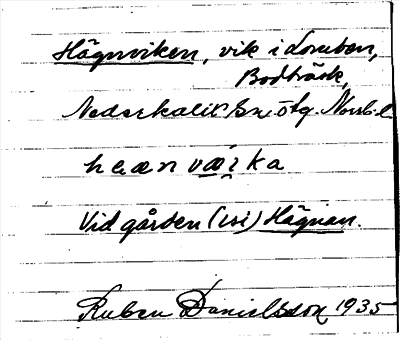 Hägnviken, vik i Lomben,
Bodträsk,
Nederkalix sn östg. Norrb. l.
hææn væika
Vid gården (isi) Hägnan.
Ruben Danielsson 1935